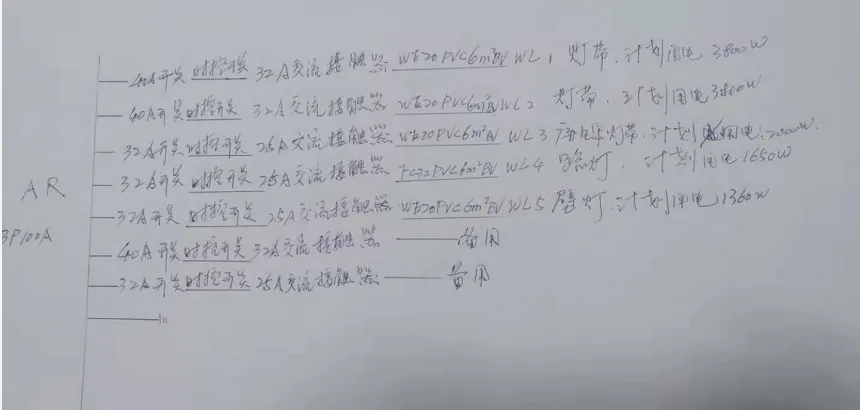 40A开关 时控开关 32A交流接触器 WE20PVC6m²BV WL1 灯带.计划用电3800W
40A开关 时控开关 32A交流接触器 WE20PVC6m²BV WL2 灯带.计划用电3800W
32A开关 时控开关 25A交流接触器 WE20PVC6m²BV WL3 灯带.计划用电.2000W.
32A开关 时控开关 25A交流接触器 FC32PVC6m²BV WL4 路灯.计划用电1650W
AR
32A开关 时控开关 25A交流接触器 WE20PVC6m²BV WL5 壁灯.计划用电1360W
3P100A
40A开关 时控开关 32A交流接触器 备用
32A开关 时控开关 25A交流接触器 备用